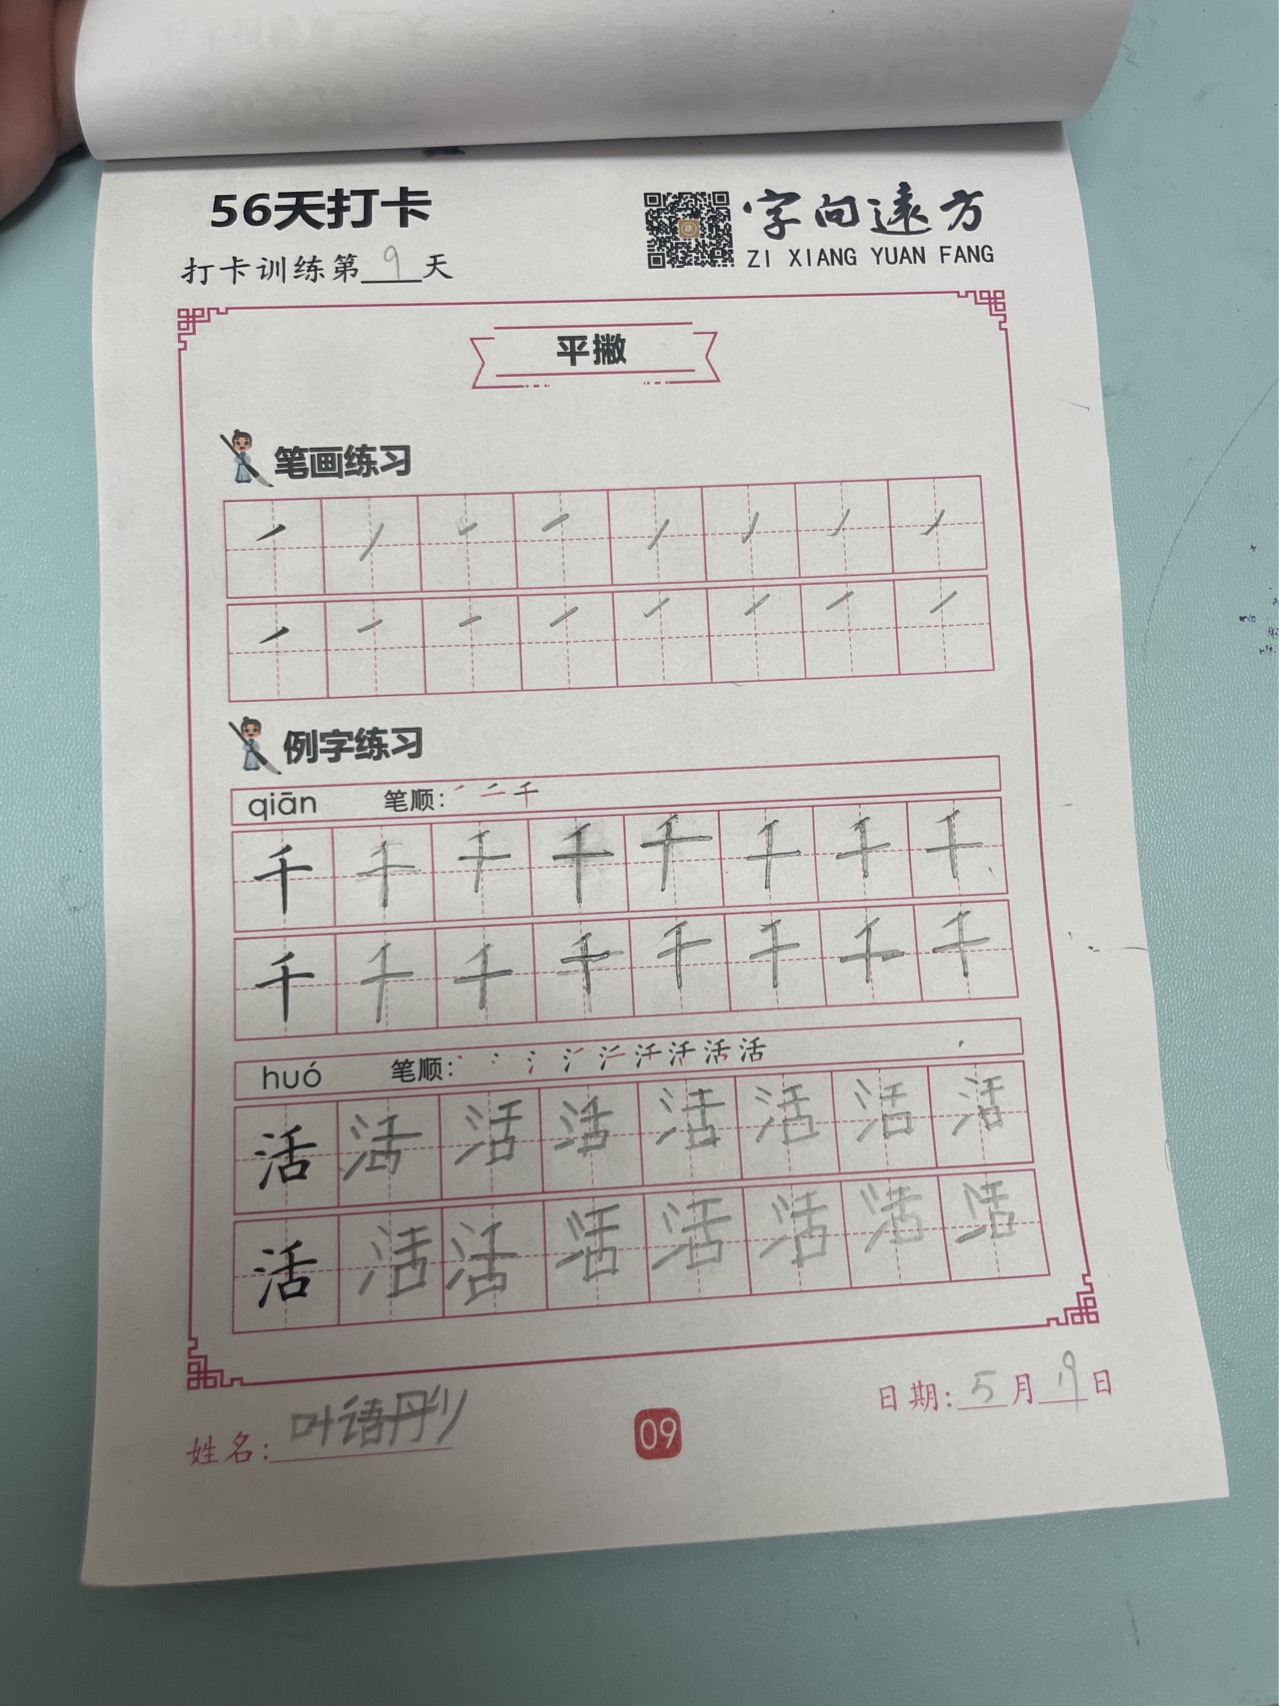 56天打卡
字向遠方
ZI XIANG YUAN FANG
打卡训练第9天
平撇
笔画练习
例字练习
qiān 笔顺: 千
千千千千千千千千
千千千千千千千千
huó 笔顺: 活活
活活活活活活活活
活活活活活活活活
姓名: 叶语彤
09
日期: 5月9日